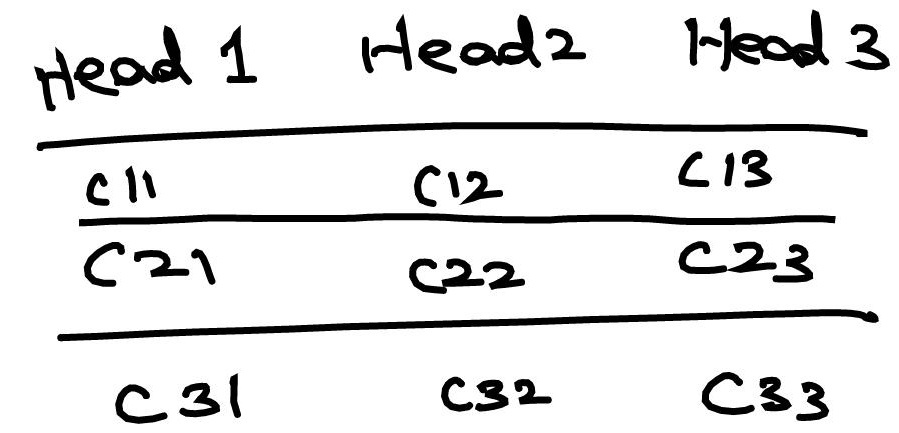 Head 1 Head2 Head 3
C11 C12 C13
C21 C22 C23
C31 C32 C33